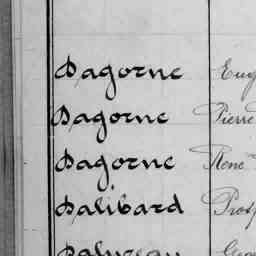 Dagorne Eug
Dagorne Pierre
Dagorne René
Dalibard Prosp